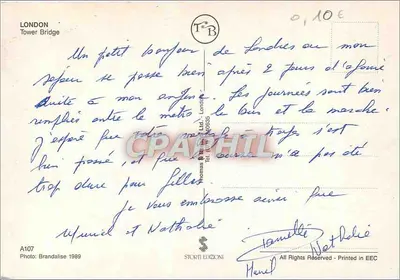 LONDON
Tower Bridge
TB
0,10 €
Un petit bonjour de Londres ou mon
séjour se passe bien après 2 jours d'agonie
suite à mon angine. Les journées sont bien
remplies entre le metro le bus et la marche.
J'espère que votre temps s'est
bien passé, et que n'a pas été
trop dure pour Gilles
je vous embrasse ainsi que
Muriel et Nathalie
Danielle
Nathalie
CPAPHIL
A107
Photo: Brandalise 1989
STORTI EDIZIONI
All Rights Reserved - Printed in EEC